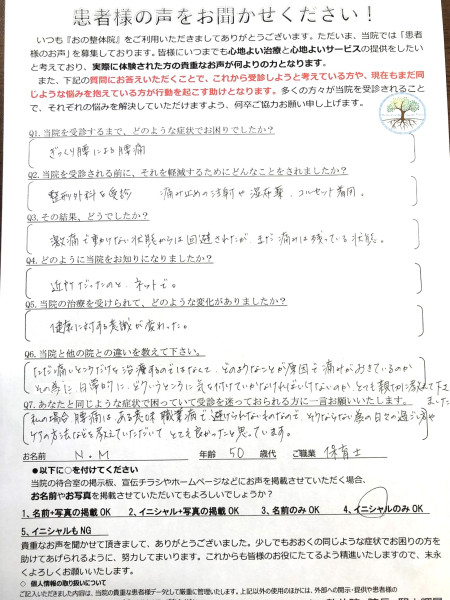 患者様の声をお聞かせください！
いつも『おの整体院』をご利用いただきましてありがとうございます。ただいま、当院では「患者
様のお声」を募集しております。皆様にいつまでも心地よい治療と心地よいサービスの提供をしたい
と考えており、実際に体験された方の貴重なお声が何よりの力となります。
また、下記の質問にお答えいただくことで、これから受診しようと考えている方や、現在もまだ同
じような悩みを抱えている方が行動を起こす助けとなります。多くの方々が当院を受診されること
で、それぞれの悩みを解決していただけますよう、何卒ご協力お願い申し上げます。
Q1.当院を受診するまで、どのような症状でお困りでしたか？
ぎっくり腰による腰痛
Q2.当院を受診される前に、それを軽減するためにどんなことをされましたか？
整形外科を受診 痛み止めの注射や湿布薬、コルセット着用。
Q3.その結果、どうでしたか？
激痛で動けない状態からは回避されたが、まだ痛みは残っている状態。
Q4.どのように当院をお知りになりましたか？
近所だったのと、ネットで。
Q5.当院の治療を受けられて、どのような変化がありましたか？
健康に対する意識が変わった。
Q6.当院と他の院との違いを教えて下さい。
ただ痛いところだけを治療するのではなくて、どのようなことが原因で痛みがおきているのか
その為に日常的に、どういうところに気を付けていかなければいけないのか、とても親切に教えて下さい
ました
Q7.あなたと同じような症状で困っていて受診を迷っておられる方に一言お願いいたします。
私の場合腰痛は、ある意味職業病で避けられないものなので、そうならない為の日々の過ごし方や
ケアの方法などを教えていただいてとても良かったと思っています。
お名前 N.M 年齢 50 歳代 ご職業 保育士
●以下に○を付けてください
当院の待合室の掲示板、宣伝チラシやホームページなどにお声を掲載させていただく場合、
お名前やお写真を掲載させていただいてもよろしいでしょうか？
1、名前+写真の掲載OK 2、イニシャル+写真の掲載OK 3、名前のみOK 4、イニシャルのみOK
5、イニシャルもNG
貴重なお声を聞かせて頂きまして、ありがとうございました。少しでもおおくの同じような症状でお困りの方を
助けてあげられるように、努力してまいります。これからも皆様のお役にたてるよう精進いたしますので、末永
くよろしくお願いいたします。
◇ 個人情報の取り扱いについて
ご記入いただきました内容は、当院の貴重な患者様データとして厳重に管理いたします。上記以外の使用のほかには、外部への開示・提供や患者様の